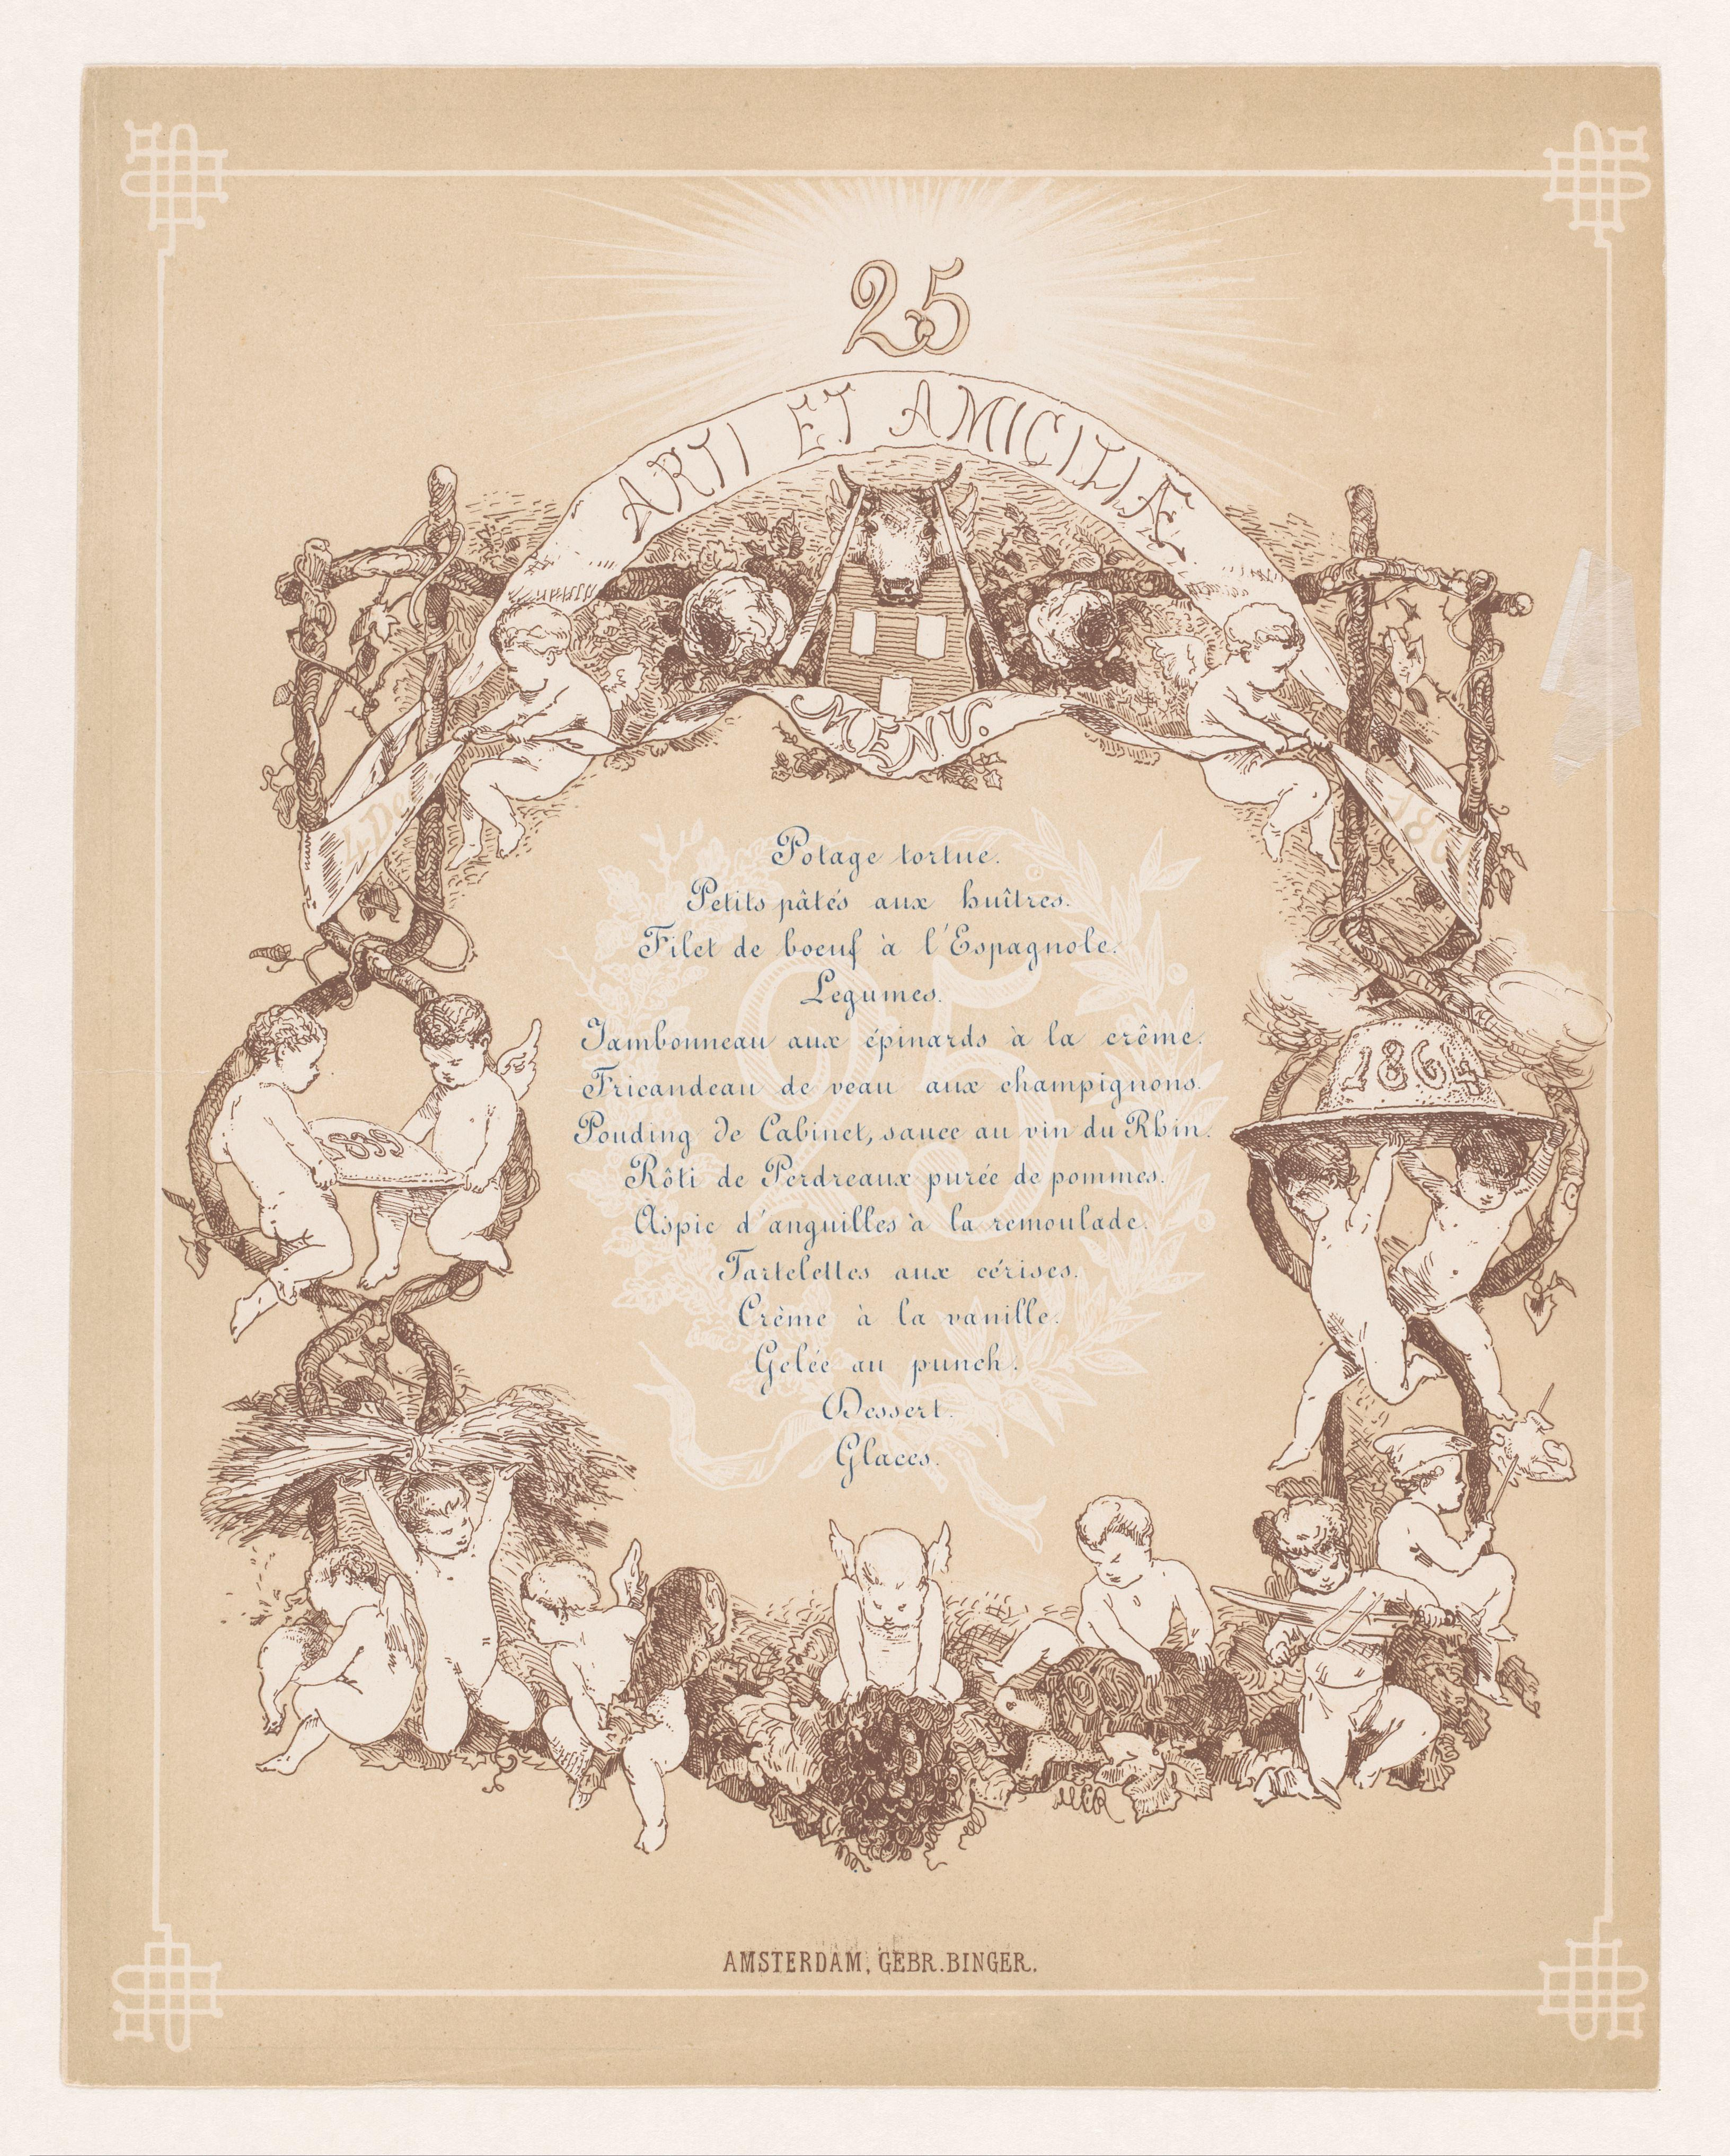 25
ARTI ET AMICITIÆ
MENU.
4 Dec
1864
Potage tortue.
Petits pâtés aux huîtres.
Filet de boeuf à l'Espagnole.
Legumes.
Jambonneau aux épinards à la crême.
Fricandeau de veau aux champignons.
Pouding de Cabinet, sauce au vin du Rhin.
Rôti de Perdreaux purée de pommes.
Aspic d'anguilles à la remoulade.
Tartelettes aux cérises.
Crème à la vanille.
Gelée au punch.
Dessert.
Glaces.
25
1839
1864
AMSTERDAM, GEBR. BINGER.